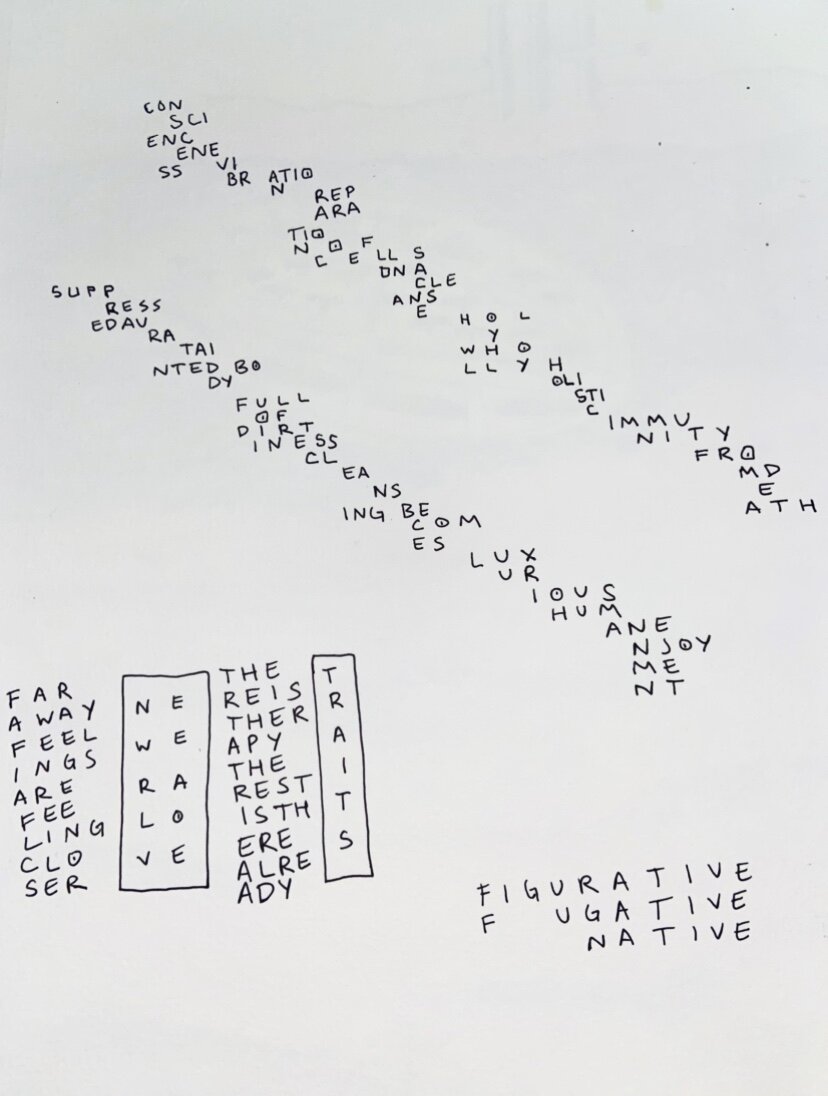 CON
SCI
ENC
ENE
SS VI
BR ATIO
N
REP
ARA
TIO
N O F
C E LL S
DNA
CLE
ANS
E
H O L
Y
W H O
L L Y H
OLI
STI
C
IMMU
NITY
FRO
MD
E
ATH
SUPP
RESS
EDAU
RA
TAI
NTED BO
DY
FULL
OF
DIRT
INESS
CL
EA
NS
ING BE
COM
ES
LUX
UR
IOUS
HUM
ANE
NJOY
ME
NT
FAR
AWAY
FEEL
INGS
ARE
FEE
LING
CLO
SER
NE
WE
RA
LO
VE
THE
REIS
THER
APY
THE
REST
ISTH
ERE
ALRE
ADY
T
R
A
I
T
S
FIGURATIVE
F UGATIVE
NATIVE